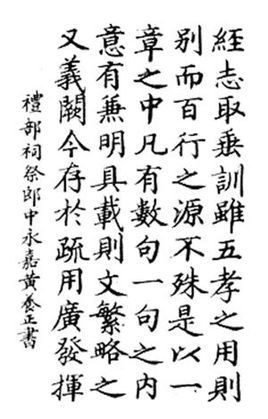 經志取垂訓雖五孝之用則
别而百行之源不殊是以一
章之中凡有數句一句之内
意有兼明具載則文繁略之
又義闕今存於疏用廣發揮
禮部祠祭郎中永嘉黃養正書